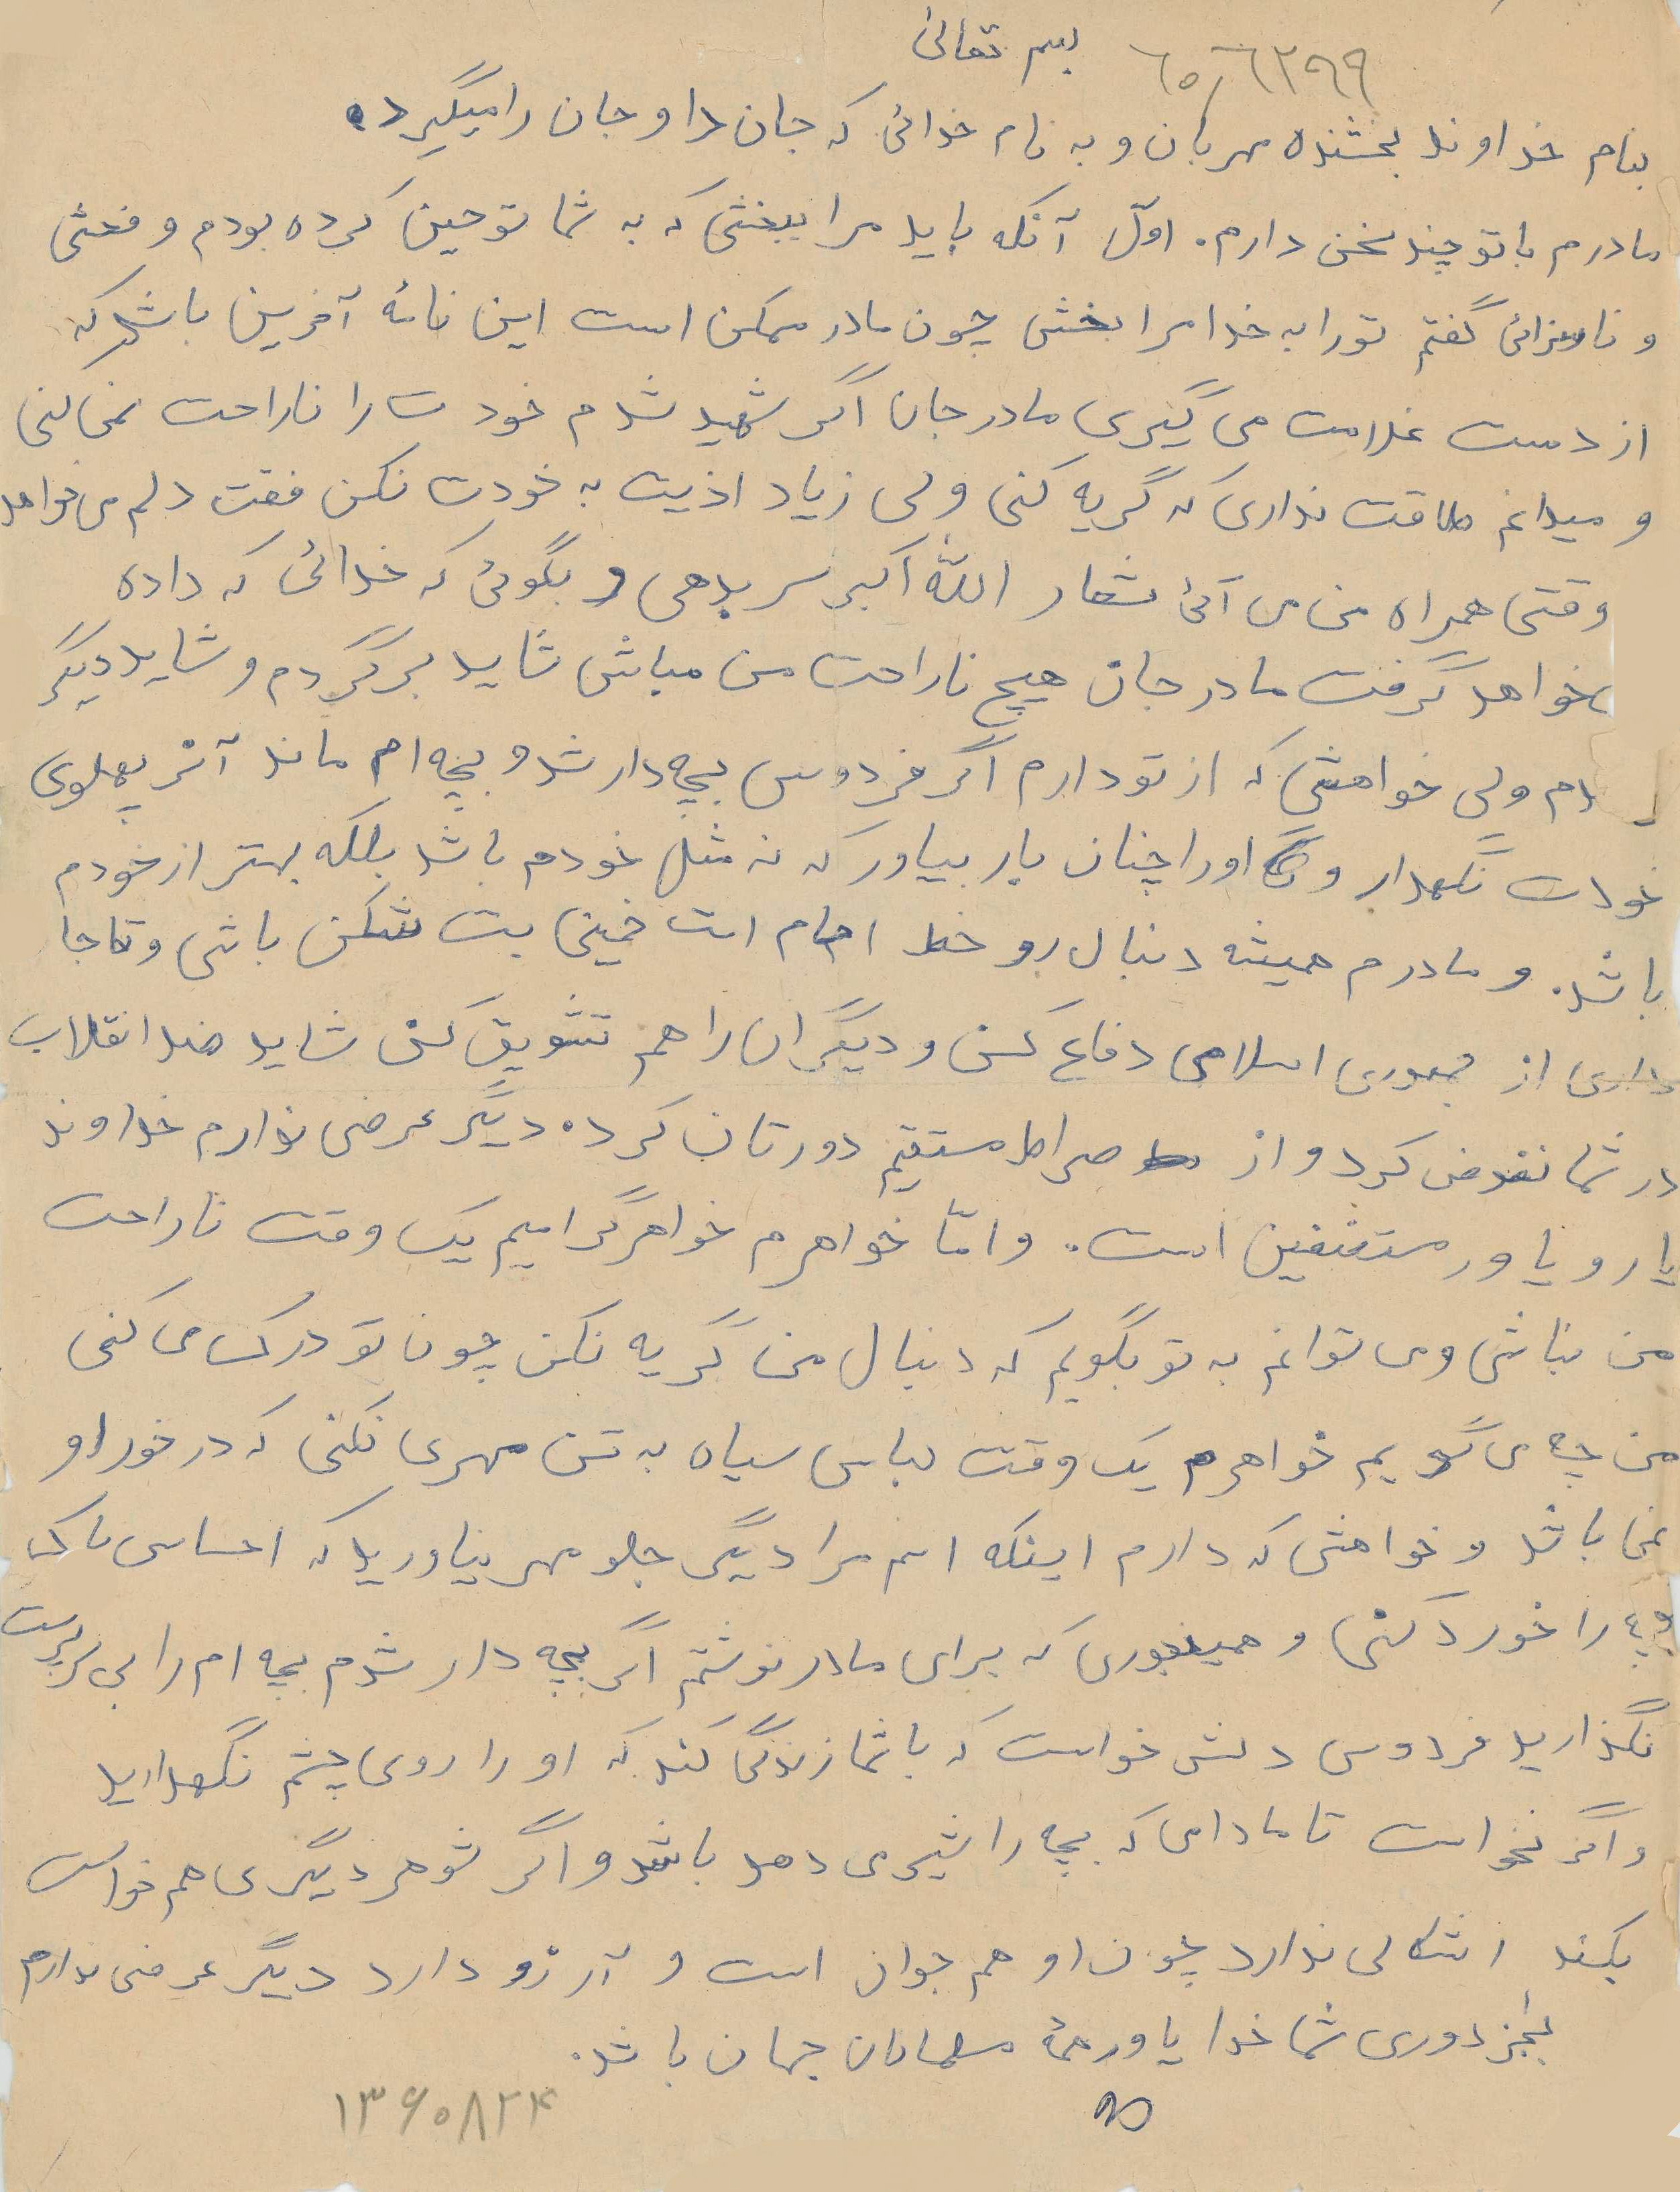 بسم تعالی ۶۵/۶۲۹۹
بنام خداوند بخشنده مهربان و به نام خدائی که جان داد و جان را میگیرد.
مادرم با تو چند سخن دارم. اوّل آنکه باید مرا ببخشی که به شما توحین کرده بودم و فحش
و ناسزائی گفتم تو را به خدا مرا بخش چون مادر ممکن است این نامهٔ آخرین باشد که
از دست غلامت می گیری مادر جان اگر شهید شدم خودت را ناراحت نمی کنی
و میدانم طاقت نداری که گریه کنی ولی زیاد اذیت به خودت نکن فقت دلم می خواهد
وقتی همراه من می آئی شعار الله اکبر سر بدهی و بگوئی که خدائی که داده
خواهد گرفت مادر جان هیچ ناراحت من مباش شاید برگردم و شاید دیگر
ولی خواهشی که از تو دارم اگر فردوس بچه دار شد و بچه ام ماند آنر پهلوی
خودت نگهدار و او را چنان بار بیاور که نه مثل خودم باشد بلکه بهتر از خودم
باشد. و مادرم همیشه دنبال رو خط امام امت خمینی بت شکن باشی و تا جا
داری از جمهوری اسلامی دفاع کنی و دیگران را هم تشویق کنی شاید ضد انقلاب
در شما نفوض کرد و از صراط مستقیم دورتان کرد. دیگر عرضی ندارم خداوند
یار و یاور مستضفین است. و امّا خواهرم خواهر گرامیم یک وقت ناراحت
من نباشی و می توانم به تو بگویم که دنبال من گریه نکن چون تو درک می کنی
من چه می گویم خواهرم یک وقت لباس سیاه به تن مهری نکنی که در خور او
نمی باشد و خواهشی که دارم اینکه اسم مرا دیگر جلو مهر نیاورید که احساس پاک
را خورد کنی و همینجوری که برای مادر نوشتم اگر بچه دار شدم بچه ام را بی سرپرست
نگذارید فردوس دلش خواست که با شما زندگی کند که او را روی چشم نگهدارید
و اگر نخواست تا مادامی که بچه را شیر می دهد باشد و اگر شوهر دیگری هم خواست
بکند اشکالی ندارد چون او هم جوان است و آرزو دارد دیگر عرضی ندارم
بجز دوری شما خدا یاور همهٔ مسلمانان جهان باشد.
۱۳۶۰۸۲۴